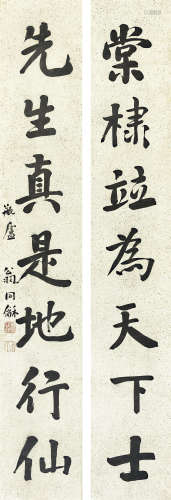 棠棣竝為天下士
先生真是地行仙
翁同龢